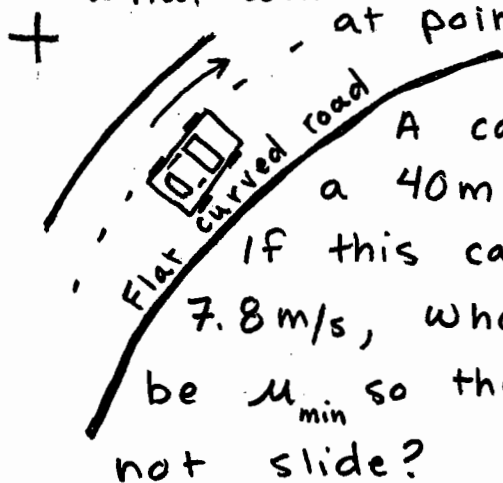 at poin
Flat curved road
A ca
a 40m
If this ca
7.8 m/s, wh
be μmin so th
not slide?